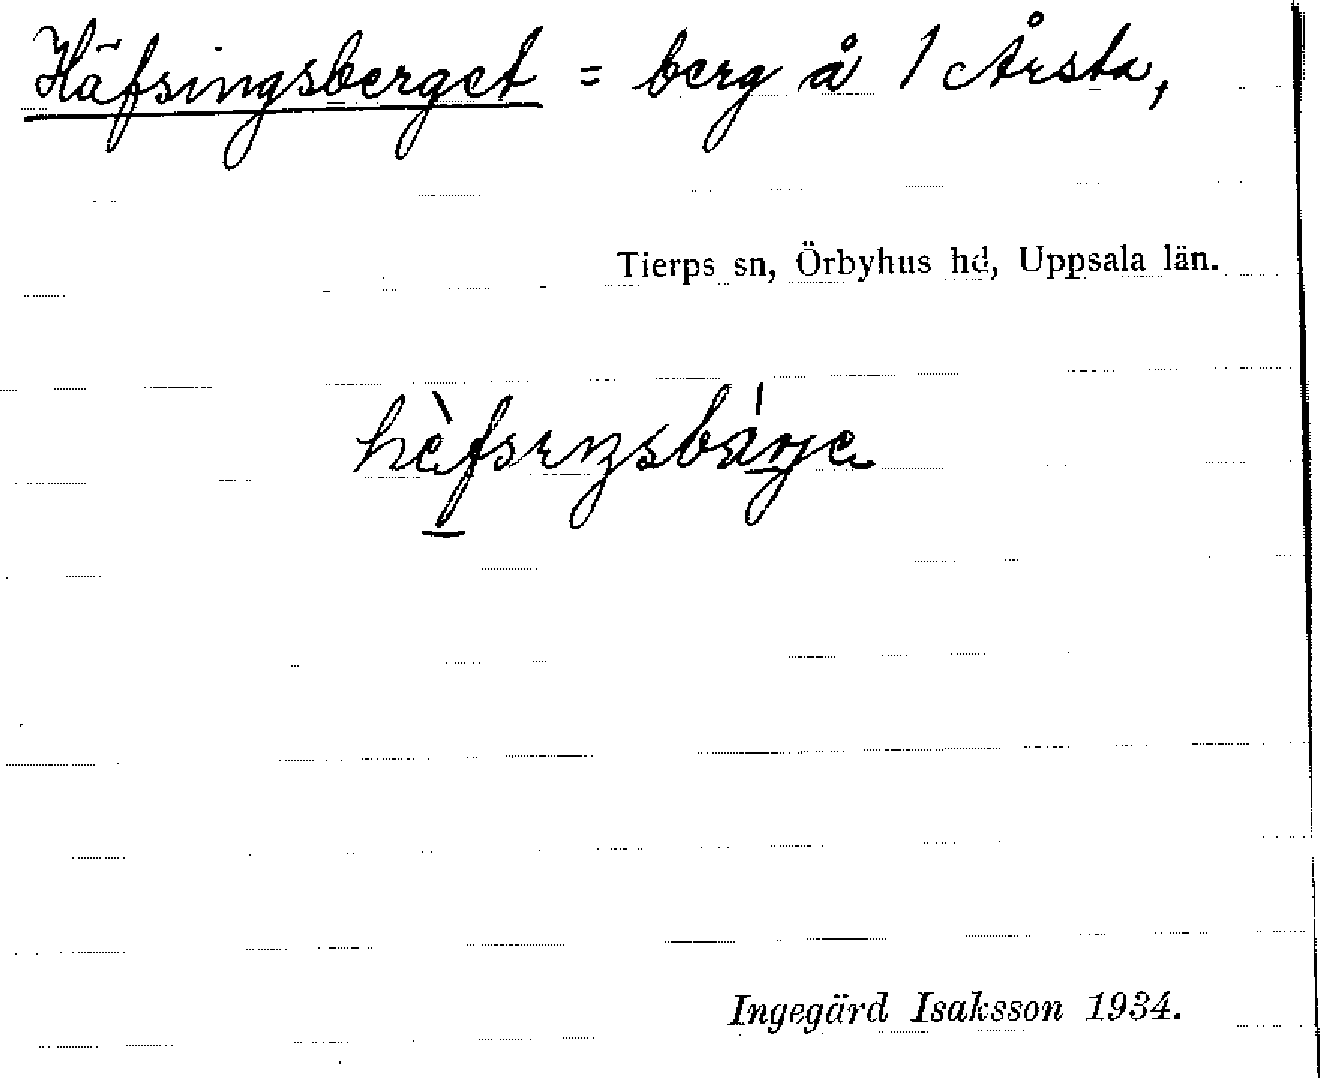 Häfsingsberget = berg å 1 Årsta,
Tierps sn, Örbyhus hd, Uppsala län.
Ingegärd Isaksson 1934.